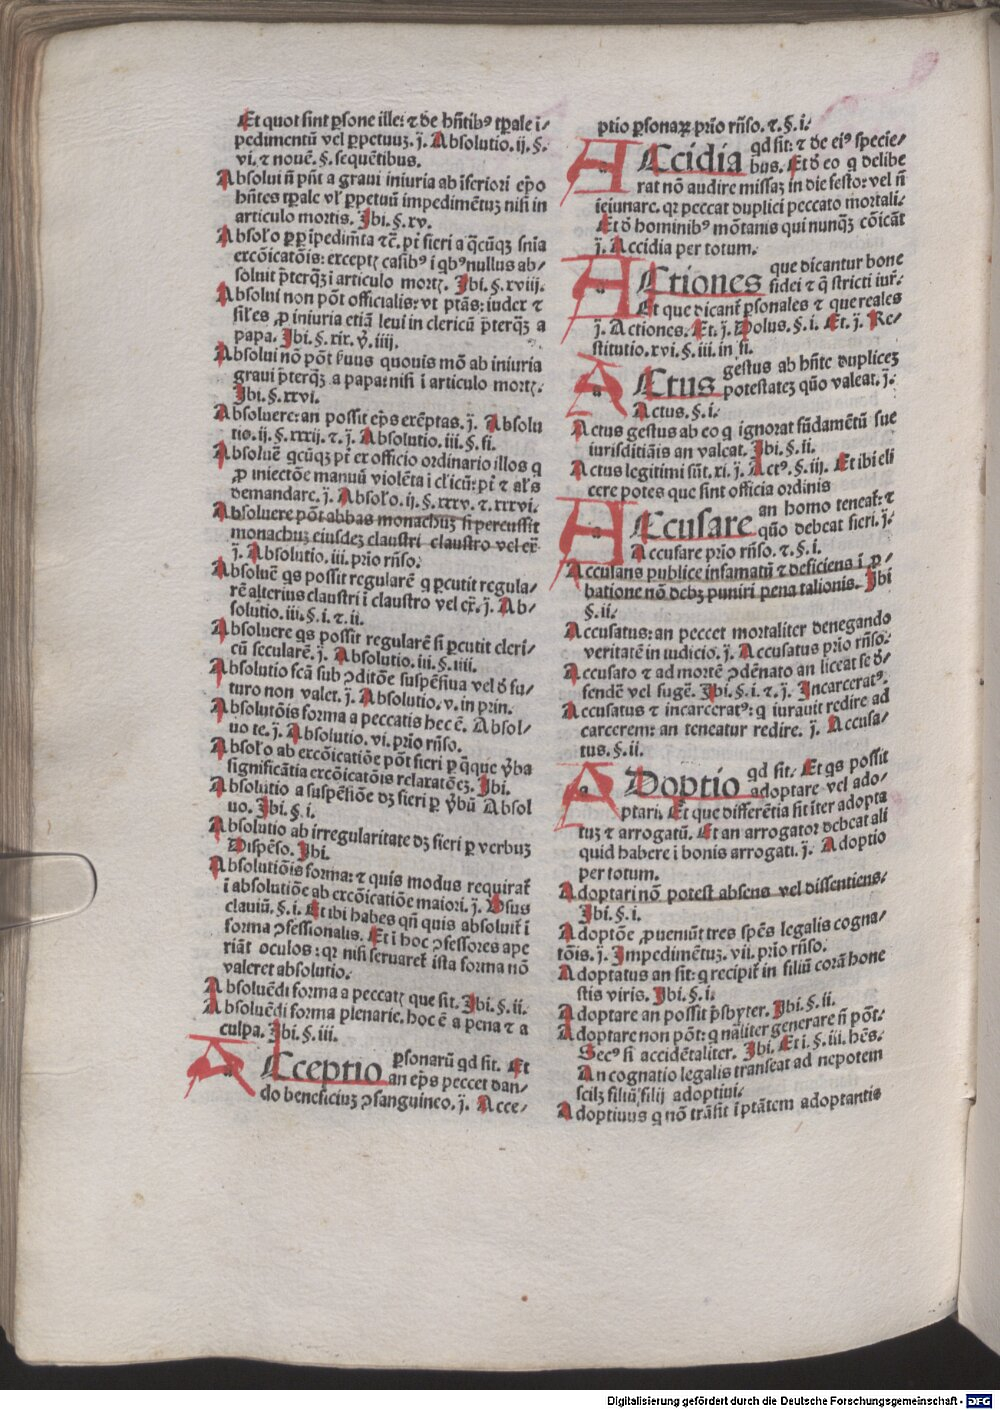 Et quot sint ꝑsone ille: ⁊ de hn̄tibꝰ tꝑale ī⸗
pedimentū vel ꝑpetuuꝫ. j̄. Absolutio. ij. §.
vi. ⁊ nouē. §. sequētibus.
Absolui n̄ pn̄t a graui iniuria ab īferiori ep̄o
hn̄tes tꝑale vl̓ ꝑpetuū impedimētuꝫ nisi in
articulo mortis. Ibi. §. xv.
Absol̓o ꝓpꝑ īpedim̄ta ⁊c̄. pt̄ fieri a q̄cūqꝫ sn̄ia
excōicatōis: exceptꝭ casibꝰ ī qbꝰ nullus ab⸗
soluit p̄terqꝫ̄ ī articulo mortꝭ. Ibi. §. xviij.
Absolui non pōt officialis: vt ptās: iudex ⁊
sil̓es ꝓ iniuria etiā leui in clericū p̄terqꝫ̄ a
papa. Ibi. §. xix. ꝟ. iiij.
Absolui nō pōt s̓uus quouis mō ab iniuria
graui p̄terqꝫ̄ a papa: nisi ī articulo mortꝭ.
Ibi. §. xxvi.
Absoluere: an possit ep̄s exēptas. j̄. Absolu
tio. ij. §. xxxij. ⁊. j̄. Absolutio. iii. §. fi.
Absoluē qcūqꝫ pt̄ ex officio ordinario illos q
ꝓ iniectōe manuū violēta ī cl̓icū: pt̄ ⁊ al̓s
demandare. j̄. Absol̓o. ij. §. xxxv. ⁊. xxxvi.
Absoluere pōt abbas monachuꝫ si percussit
monachuꝫ eiusdeꝫ claustri claustro vel ex̄
j̄. Absolutio. iii. prio rn̄so.
Absoluē qs possit regularē q ꝑcutit regula⸗
rē alterius claustri ī claustro vel ex̄. j̄. Ab⸗
solutio. iii. §. i. ⁊. ii.
Absoluere qs possit regularē si ꝑcutit cleri⸗
cū secularē. j̄. Absolutio. iii. §. iiii.
Absolutio fcā sub ꝯditōe suspēsiua vel ð fu⸗
turo non valet. j̄. Absolutio. v. in prin.
Absolutōis forma a peccatis hec ē. Absol⸗
uo te. j̄. Absolutio. vi. prio rn̄so.
Absol̓o ab excōicatiōe pōt fieri ꝑ q̄que ꝟba
significātia excōicatōis relaxatōeꝫ. Ibi.
Absolutio a suspēsiōe dꝫ fieri ꝑ ꝟbū Absol
uo. Ibi. §. i.
Absolutio ab irregularitate dꝫ fieri ꝑ verbuꝫ
Dispēso. Ibi.
Absolutiōis forma: ⁊ quis modus requirat̄
ī absolutiōe ab excōicatiōe maiori. j̄. Usus
clauiū. §. i. Et ibi habes qn̄ quis absoluit̄ ī
forma ꝯfessionalis. Et ī hoc ꝯfessores ape
riāt oculos: qꝛ nisi seruaret̄ ista forma nō
valeret absolutio.
Absoluēdi forma a peccatꝭ que sit. Ibi. §. ii.
Absoluēdi forma plenarie. hoc ē a pena ⁊ a
culpa. Ibi. §. iii.
Acceptio ꝑsonarū qd sit. Et
an ep̄s peccet dan⸗
do beneficiuꝫ ꝯsanguineo. j̄. Acce⸗
ptio ꝑsonaꝝ prio rn̄so. ⁊. §. i.
Accidia qd sit: ⁊ de eiꝰ specie⸗
bus. Et ð eo q delibe
rat nō audire missaꝫ in die festo: vel n̄
ieiunare. qꝛ peccat duplici peccato mortali.
Et ð hominibꝰ mōtanis qui nunqꝫ̄ cōicāt
j̄. Accidia per totum.
Actiones que dicantur bone
fidei ⁊ q̄ stricti iur̄.
Et que dicant̄ ꝑsonales ⁊ que reales
j̄. Actiones. Et. j̄. Dolus. §. i. Et. j̄. Re⸗
stitutio. xvi. §. iii. in fi.
Actus gestus ab hn̄te duplicez
potestateꝫ quō valeat. j̄.
Actus. §. i.
Actus gestus ab eo q ignorat fūdamētū sue
iurisditiōis an valeat. Ibi. §. fi.
Actus legitimi sūt. xi. j̄. Actꝰ. §. iij. Et ibi eli
cere potes que sint officia ordinis
Accusare an homo teneat̄: ⁊
quō debeat fieri. j̄.
Accusare prio rn̄so. ⁊. §. i.
Accusans publice infamatū ⁊ deficiens ī ꝓ⸗
batione nō debꝫ puniri pena talionis. Ibi
§. ii.
Accusatus: an peccet mortaliter denegando
veritatē in iudicio. j̄. Accusatus prio rn̄so.
Accusato ⁊ ad mortē ꝯdēnato an liceat se ð⸗
fendē vel fugē. Ibi. §. i. ⁊. j̄. Incarceratꝰ.
Accusatus ⁊ incarceratꝰ: q iurauit redire ad
carcerem: an teneatur redire. j̄. Accusa⸗
tus. §. ii.
Adoptio qd sit. Et qs possit
adoptare vel ado⸗
ptari. Et que differētia sit iter adopta
tuꝫ ⁊ arrogatū. Et an arrogator debeat ali
quid habere ī bonis arrogati. j̄. Adoptio
per totum.
Adoptari nō potest absens vel dissentiens.
Ibi. §. i.
Adoptōe ꝓueniūt tres spēs legalis cogna⸗
tōis. j̄. Impedimētuꝫ. vii. prio rn̄so.
Adoptatus an sit: q recipit̄ in filiū corā hone
stis viris. Ibi. §. i.
Adoptare an possit p̄sbyter. Ibi. §. ii.
Adoptare non pōt: q nāliter generare n̄ pōt.
Secꝰ si accidētaliter. Ibi. Et i. §. iii. hēs.
An cognatio legalis transeat ad nepotem
scilꝫ filiū filij adoptiui.
Adoptiuus q nō trāsit ī ptātem adoptantis
Digitalisierung gefördert durch die Deutsche Forschungsgemeinschaft - DFG